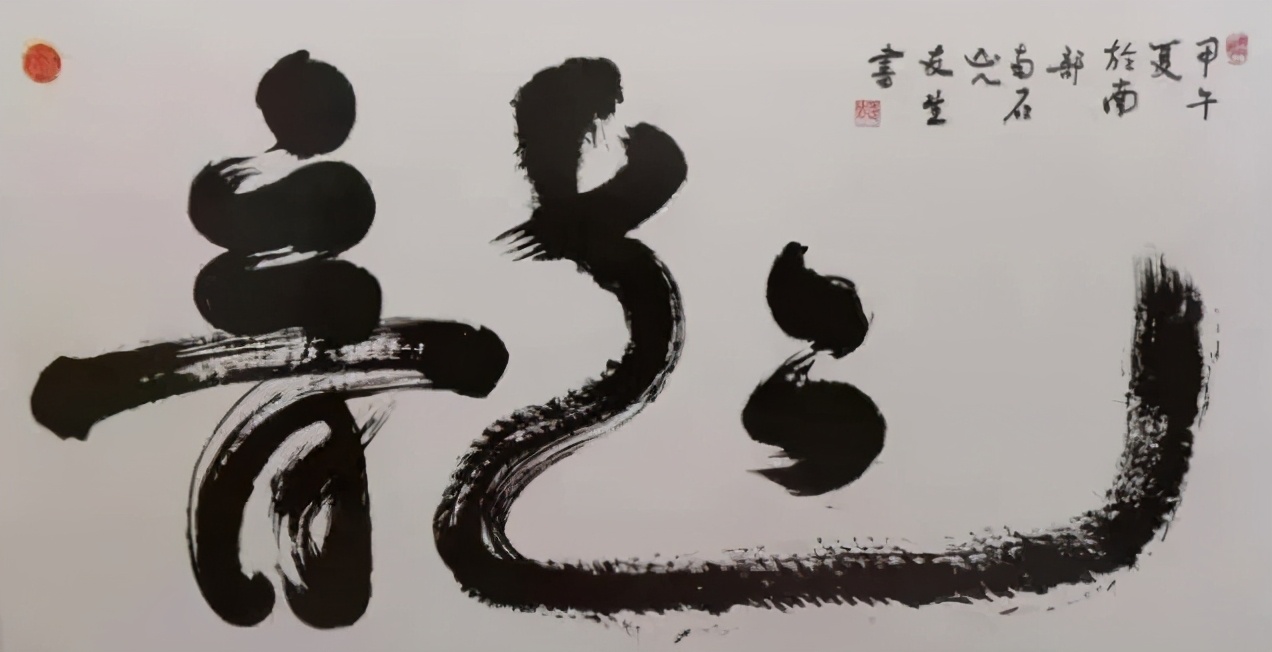 龍
甲午
夏
於南
部
石
山人
友生
書